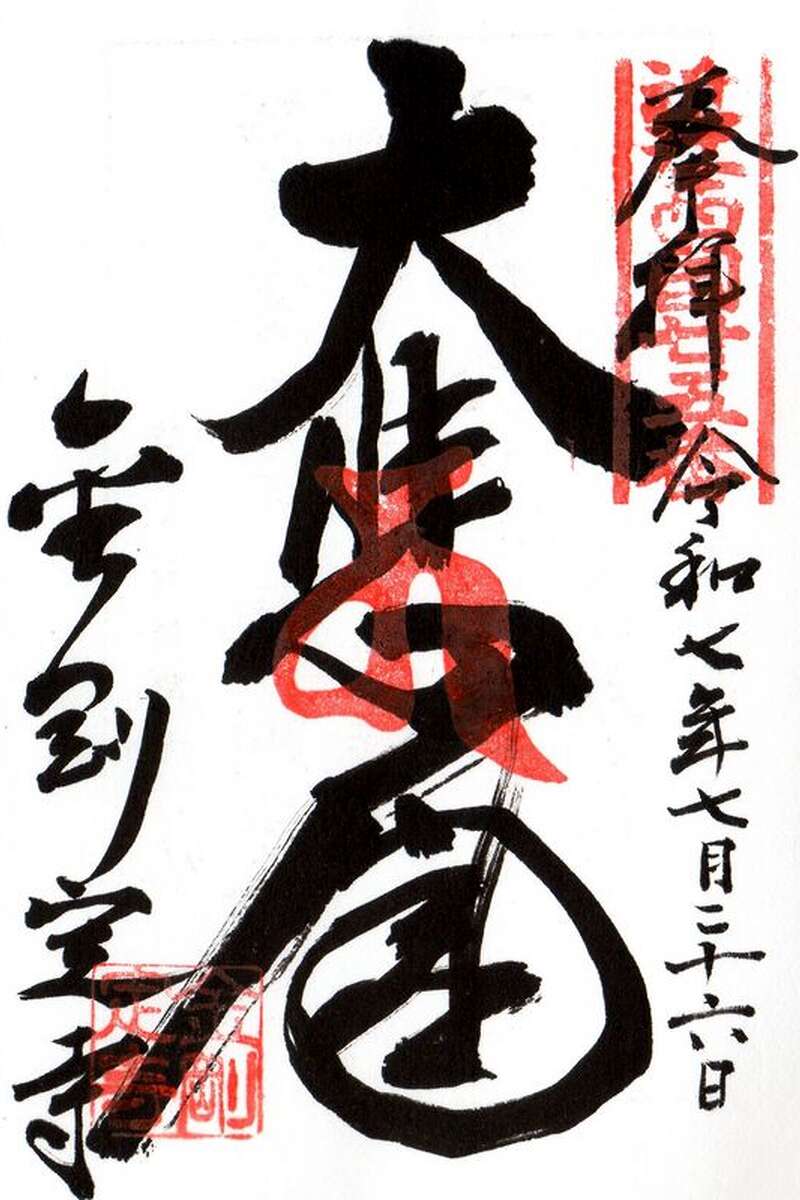 奉拝
令和七年七月二十六日
大悲
金剛定寺
金剛
定寺